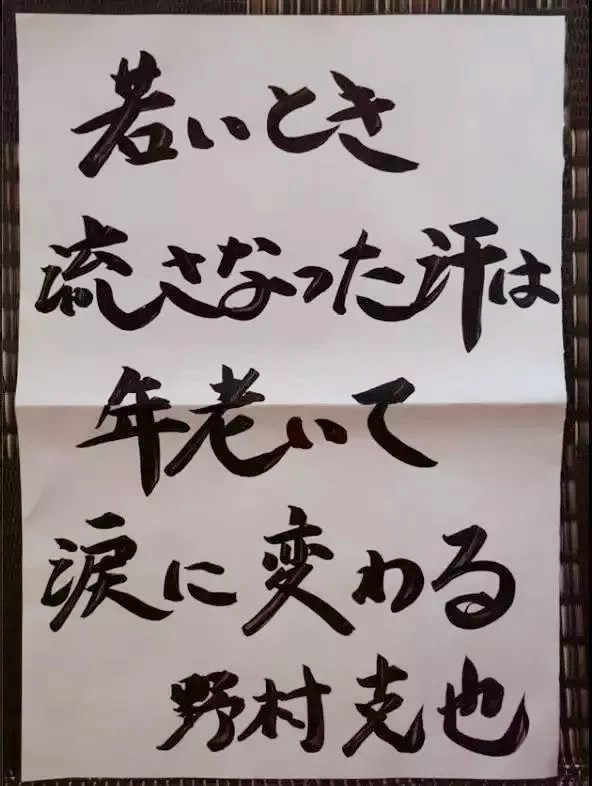 若いとき
流さなった汗は
年老いて
涙に変わる
野村克也